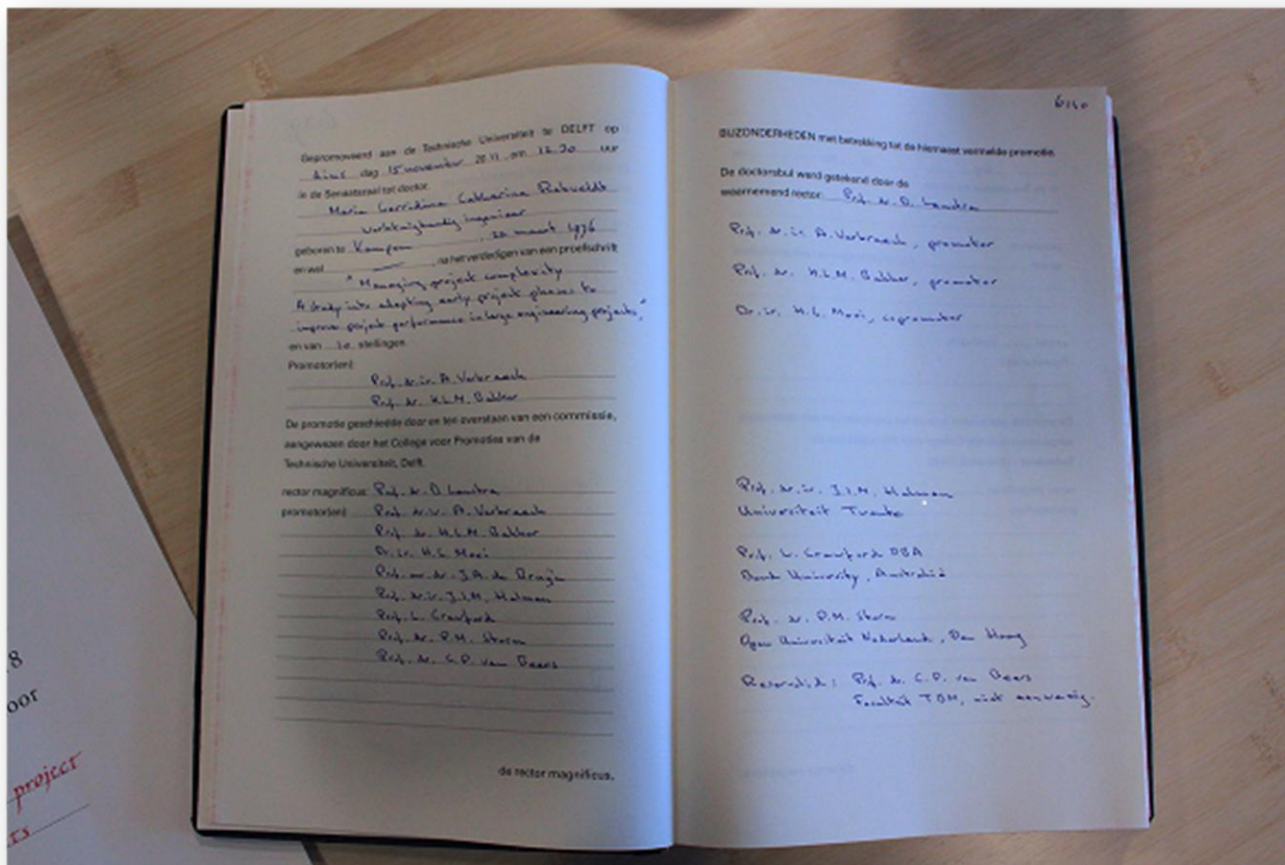 Gepromoveerd aan de Technische Universiteit te DELFT op
dins dag 15 november 2011 om 12.30 uur
in de Senaatszaal tot doctor.
Maria Gerridina Catharina
werktuigkundig ingenieur
geboren te Kampen, 20 maart 1976
en wel — , na het verdedigen van een proefschrift
"Managing project complexity
A study into adapting early project phases to
improve project performance in large engineering projects"
en van 10 stellingen.
Promotor(en):
Prof. dr. ir. A. Verbraeck
Prof. dr. H.L.M. Bakker
De promotie geschiedde door en ten overstaan van een commissie,
aangewezen door het College voor Promoties van de
Technische Universiteit, Delft.
rector magnificus: Prof. dr. D.
promotor(en): Prof. dr. ir. A. Verbraeck
Prof. dr. H.L.M. Bakker
Dr. ir. H.G. Mooi
Prof. mr. dr. J.A. de Bruijn
Prof. dr. ir. J.I.M. Halman
Prof. L. Crawford
Prof. dr. P.M. Storm
Prof. dr. C.P. van Beers
de rector magnificus,
6140
BIJZONDERHEDEN met betrekking tot de hiernaast vermelde promotie.
De doctorsbul werd getekend door de
waarnemend rector: Prof. dr. D.
Prof. dr. ir. A. Verbraeck, promotor
Prof. dr. H.L.M. Bakker, promotor
Dr. ir. H.G. Mooi, copromotor
Prof. dr. ir. J.I.M. Halman
Universiteit Twente
Prof. L. Crawford DBA
Bond University, Australië
Prof. dr. P.M. Storm
Open Universiteit Nederland, Den Haag
Reservelid: Prof. dr. C.P. van Beers
Faculteit TBM, niet aanwezig.
8
oor
project
ts